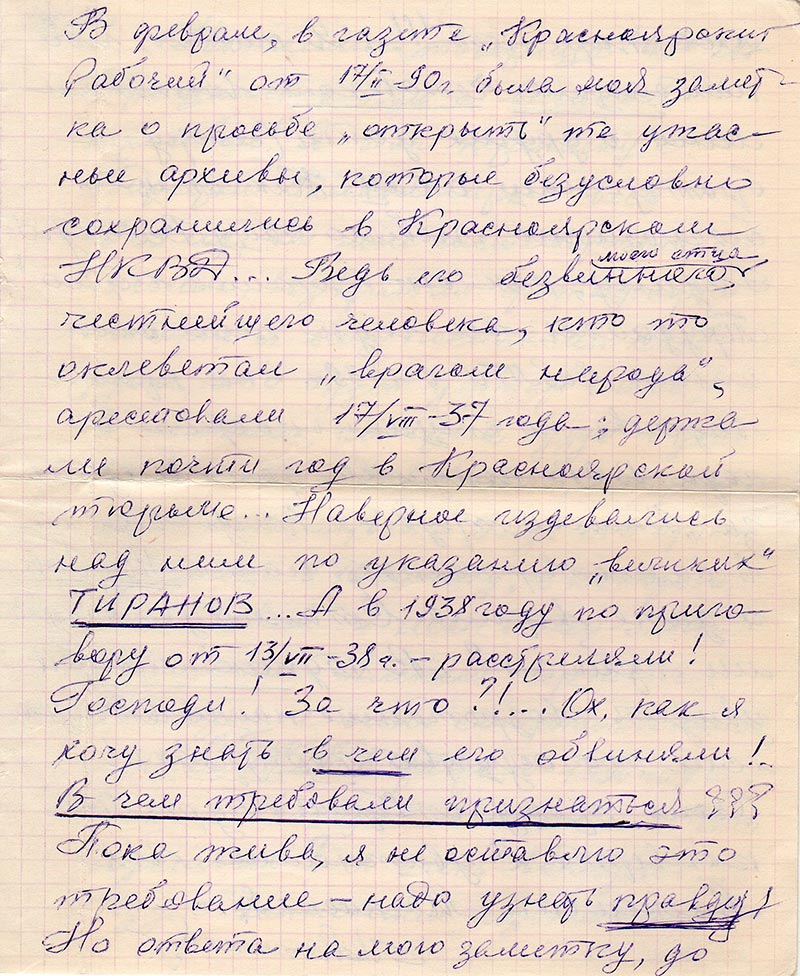 В феврале, в газете „Красноярский
Рабочий" от 17/II-90г. была моя замет-
ка о просьбе „открыть" те ужас-
ные архивы, которые безусловно
сохранились в Красноярском
моего отца,
НКВД... Ведь его безвинного,
честнейшего человека, кто то
оклеветал „врагом народа",
арестовали 17/VIII-37 года; держа-
ли почти год в Красноярской
тюрьме... Наверное издевались
над ним по указанию „великих"
ТИРАНОВ... А в 1938 году по приго-
вору от 13/VII-38г. – расстреляли!
Господи! За что?!... Ох, как я
хочу знать в чем его обвиняли!..
В чем требовали признаться ???
Пока жива, я не оставлю это
требование – надо узнать правду!
Но ответа на мою заметку, до